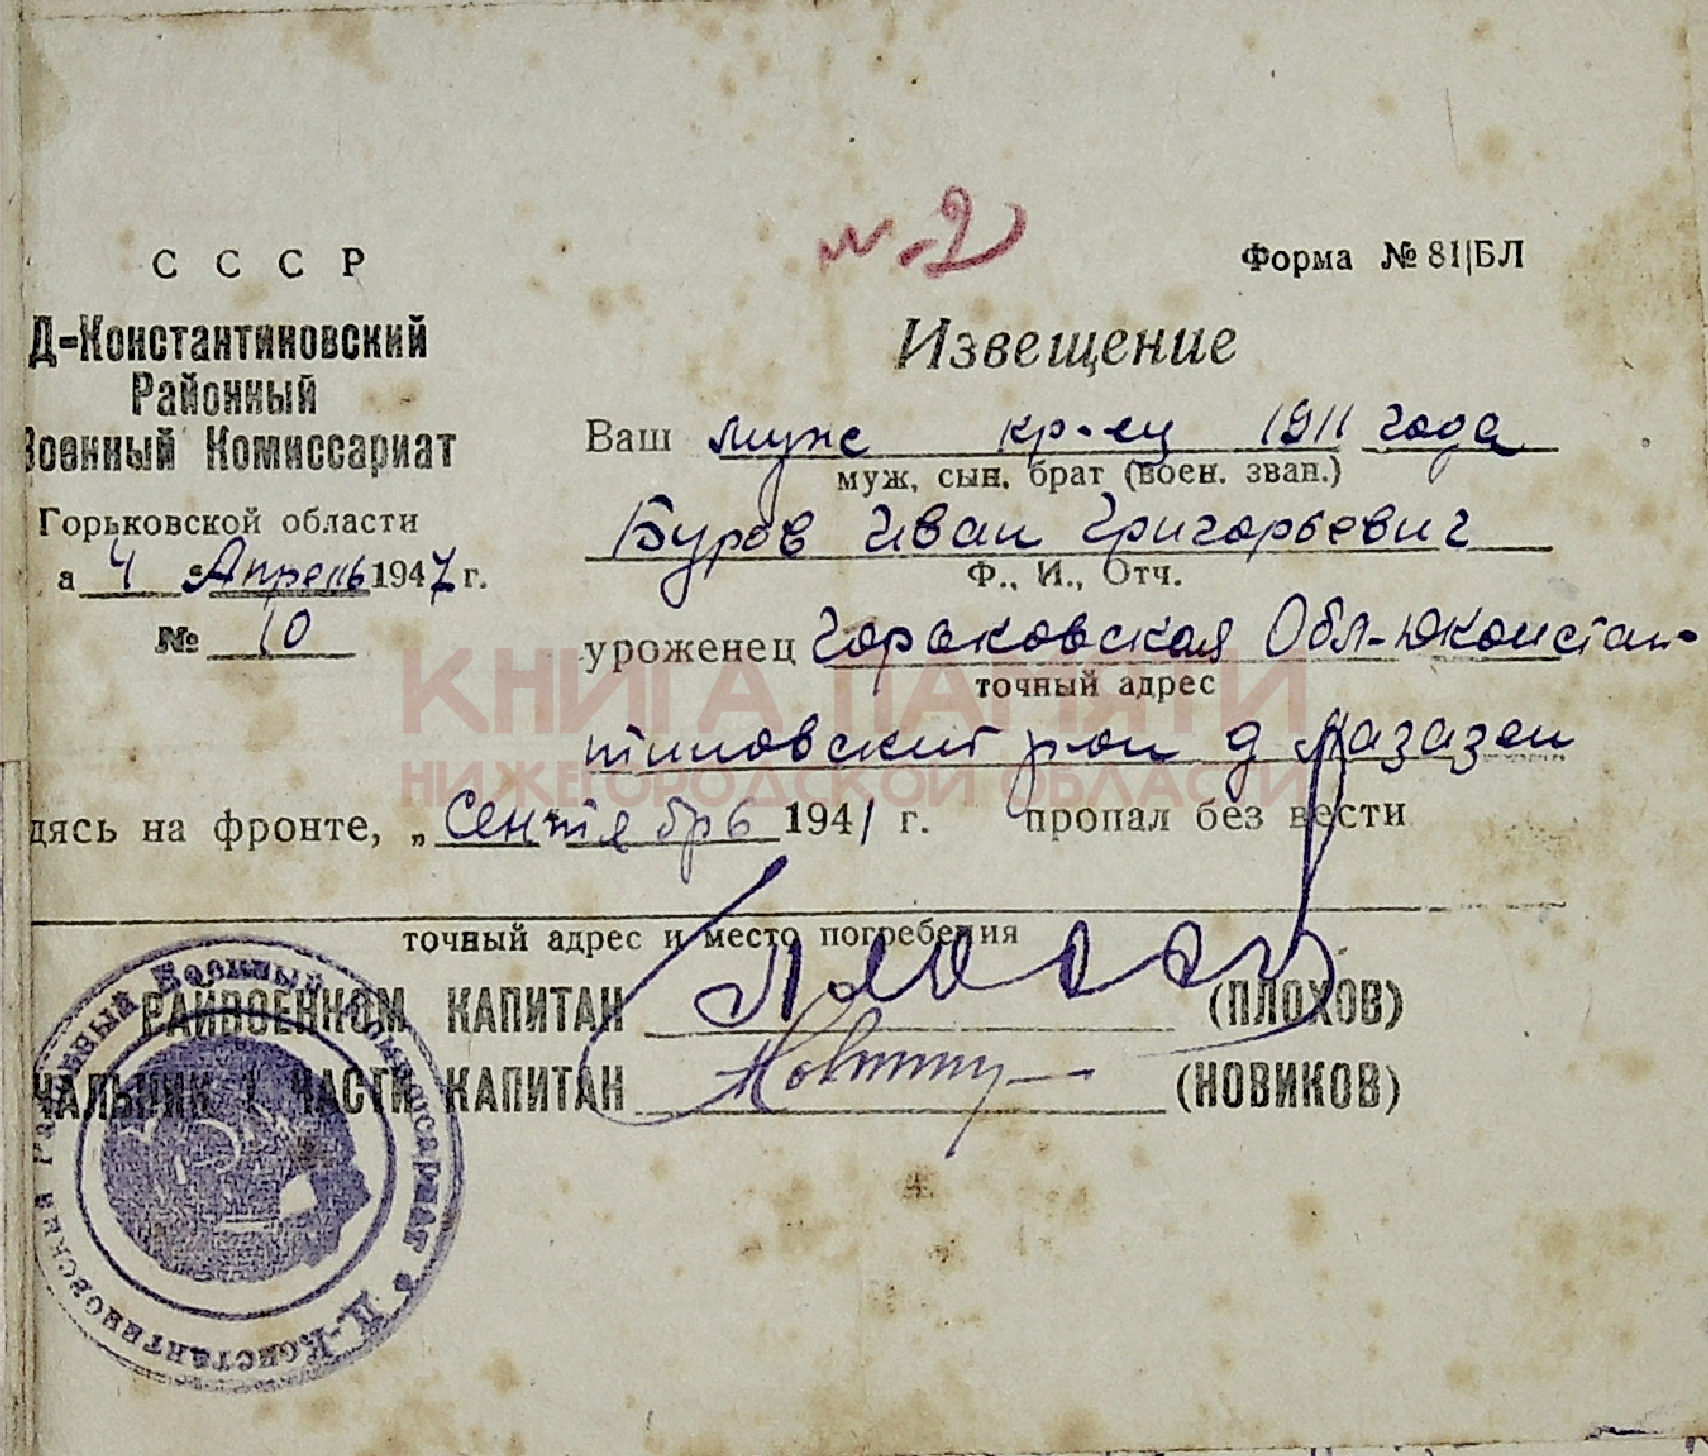 м-2
СССР
Форма № 81|БЛ
Д-Константиновский
Районный
Военный Комиссариат
Горьковской области
а 4 Апрель 1947 г.
№ 10
Извещение
Ваш муж кр-ец 1911 года
муж, сын, брат (воен. зван.)
Буров Иван Григорьевич
Ф., И., Отч.
уроженец Горьковская Обл-Дконстан-
точный адрес
тиновский рон д
КНИГА ПАМЯТИ
НИЖЕГОРОДСКОЙ ОБЛАСТИ
дясь на фронте, „Сентябрь 1941 г. пропал без вести
точный адрес и место погребения
РАЙВОЕНКОМ КАПИТАН (ПЛОХОВ)
ЧАЛЬНИК 1 ЧАСТИ КАПИТАН (НОВИКОВ)
Д-Константиновский Районный Военный Комиссариат